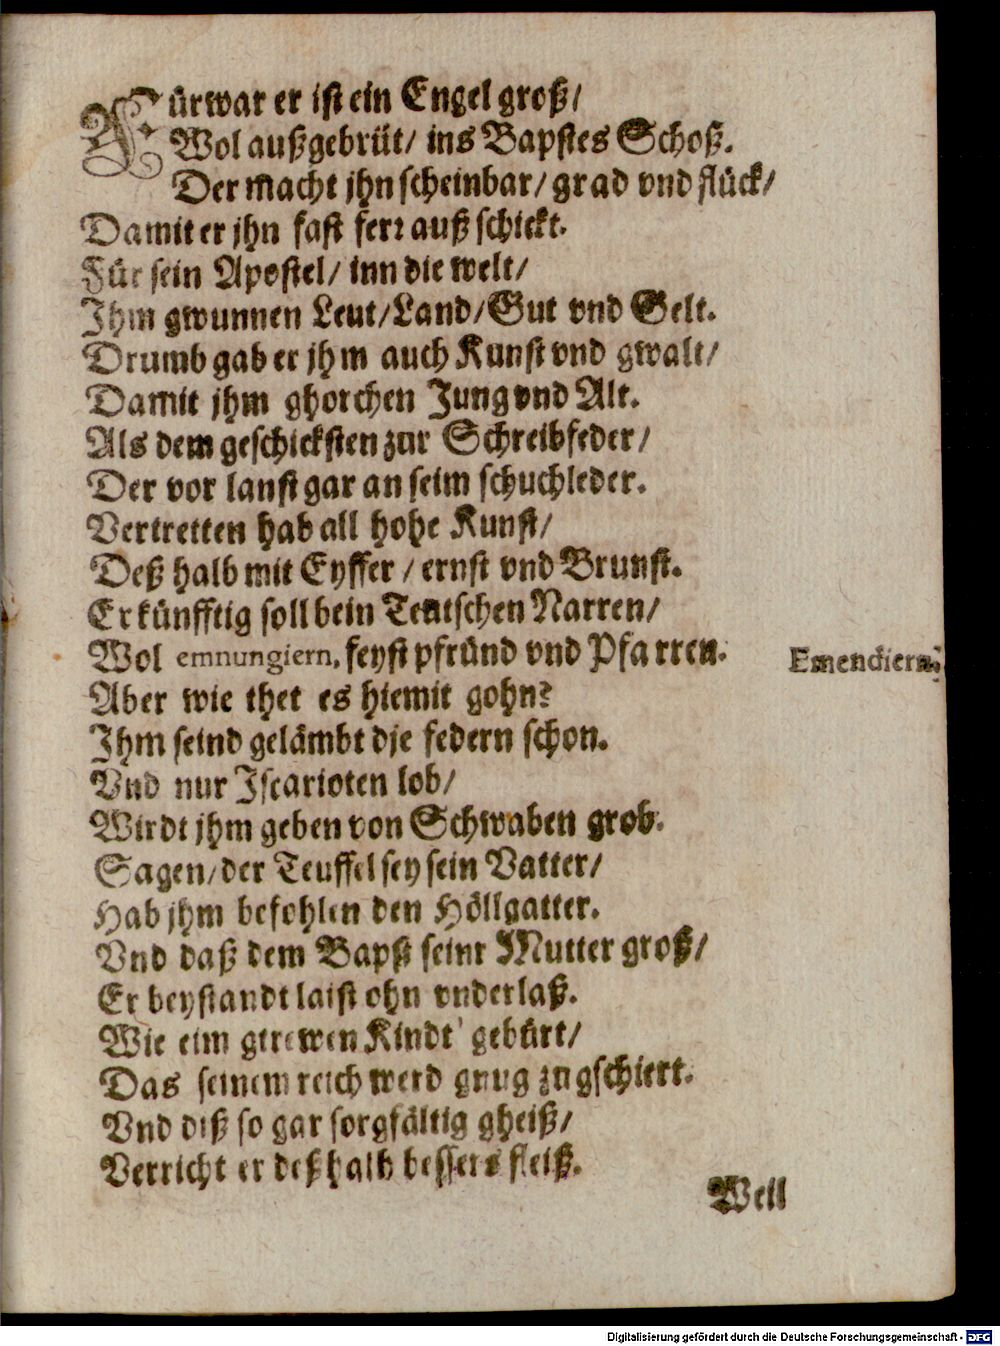 Fürwar er ist ein Engel groß/
Wol außgebrüt/ ins Bapstes Schoß.
Der macht jhn scheinbar/ grad vnd flück/
Damit er jhn fast ferr auß schickt.
Für sein Apostel/ inn die welt/
Ihm gwunnen Leut/Land/Gut vnd Gelt.
Drumb gab er jhm auch Kunst vnd gwalt/
Damit jhm ghorchen Jung vnd Alt.
Als dem geschicksten zur Schreibfeder/
Der vor lanst gar an seim schuchleder.
Vertretten hab all hohe Kunst/
Deß halb mit Eyffer / ernst vnd Brunst.
Er künfftig soll bein Teutschen Narren/
Wol emnungiern, feyst pfründ vnd Pfarren. Emendiern.
Aber wie thet es hiemit gohn?
Ihm seind gelämbt dje federn schon.
Vnd nur Iscarioten lob/
Wirdt jhm geben von Schwaben grob.
Sagen/der Teuffel sey sein Vatter/
Hab jhm befohlen den Höllgatter.
Vnd daß dem Bapst seinr Mutter groß/
Er beystandt laist ohn vnderlaß.
Wie eim getrewen Kindt gebürt/
Das seinem reich werd gnug zugschiert.
Vnd diß so gar sorgfältig gheiß/
Verricht er deßhalb bessers fleiß.
Weil
Digitalisierung gefördert durch die Deutsche Forschungsgemeinschaft - DFG